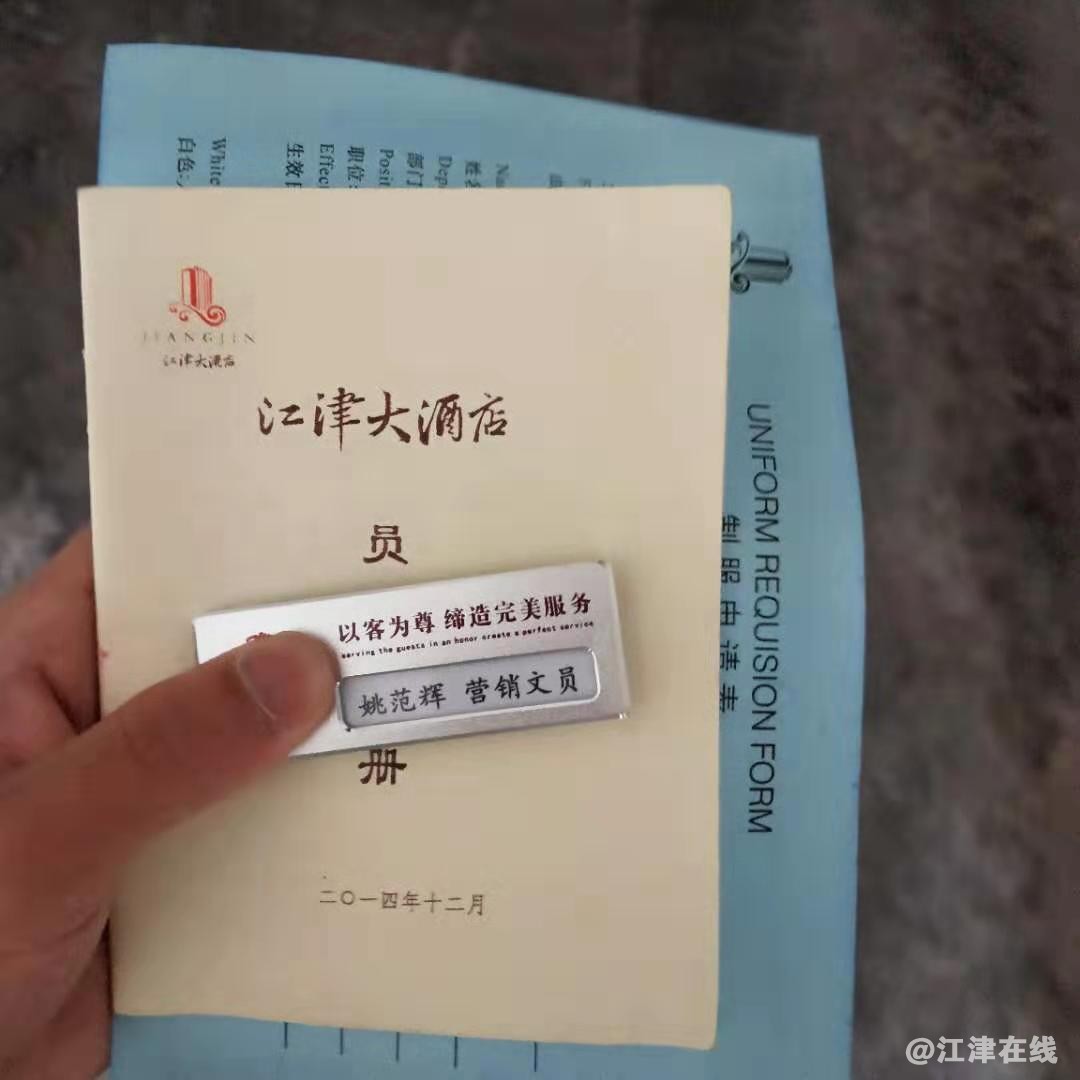 JIANGJIN
江津大酒店
江津大酒店
员
以客为尊 缔造完美服务
serving the guests in an honor create a perfect service
姚范辉 营销文员
册
二〇一四年十二月
UNIFORM REQUISION FORM
制服申请表
部门
职位:
White
白色:
@江津在线